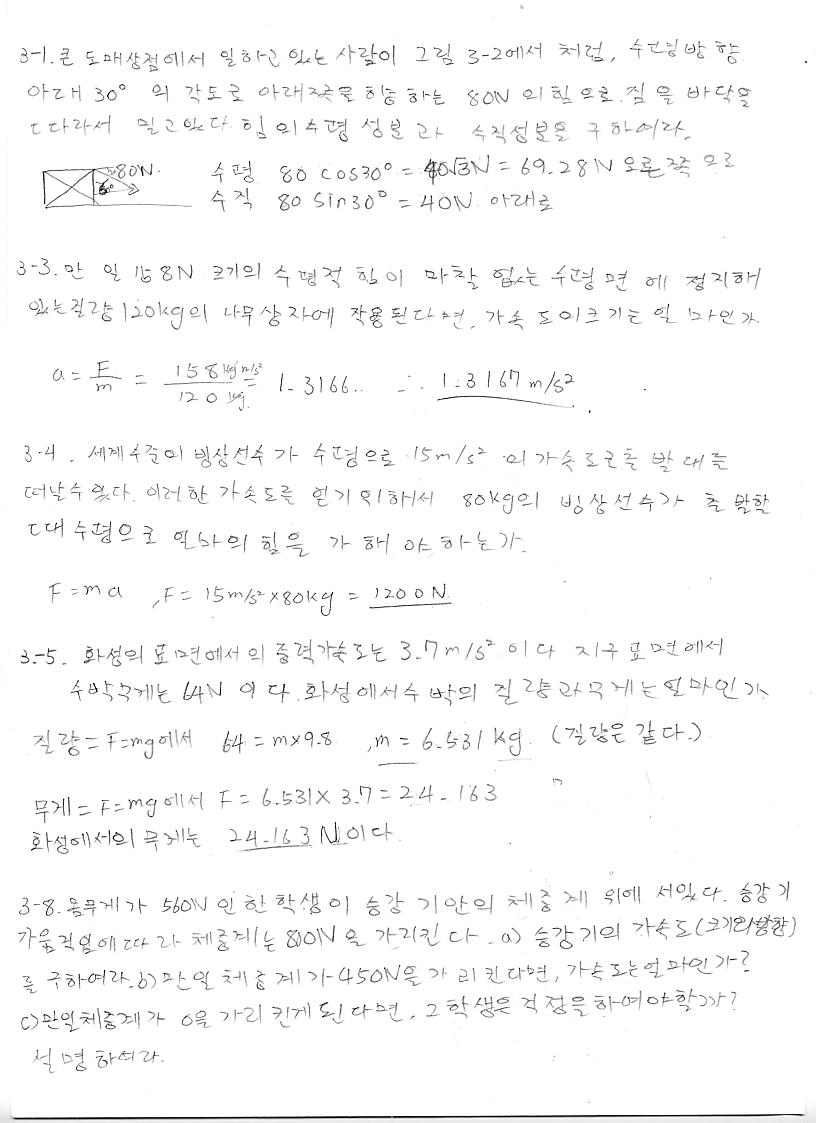 3-1. 큰 도매상점에서 일하고 있는 사람이 그림 3-2에서 처럼, 수평방향
아래 30° 의 각도로 아래쪽을 향하는 80N 의 힘으로 짐을 바닥을
따라서 밀고있다. 힘의 수평 성분과 수직성분을 구하여라.
80N. 수평 80 cos30° = 40√3N = 69.28N 오른쪽으로
수직 80 sin30° = 40N 아래로
3-3. 만일 158N 크기의 수평적 힘이 마찰 없는 수평면에 정지해
있는 질량 120kg의 나무상자에 작용된다면, 가속도의 크기는 얼마인가.
a = F/m = 158kg m/s² / 120 kg = 1.3166.. ∴ 1.3167 m/s²
3-4. 세계수준의 빙상선수가 수평으로 15m/s² 의 가속도로 출발대를
떠날수 있다. 이러한 가속도를 얻기 위하서 80kg의 빙상선수가 출발할
때 수평으로 얼마의 힘을 가해야 하는가.
F = ma , F = 15m/s² × 80kg = 1200N.
3-5. 화성의 표면에서의 중력가속도는 3.7m/s² 이다 지구 표면에서
수박무게는 64N 이다. 화성에서 수박의 질량과 무게는 얼마인가.
질량 = F=mg에서 64 = m×9.8 , m = 6.531 kg. (질량은 같다.)
무게 = F=mg에서 F = 6.531 × 3.7 = 24.163
화성에서의 무게는 24.163 N이다.
3-8. 몸무게가 560N 인 한 학생이 승강기안의 체중계 위에 서있다. 승강기
가 움직임에 따라 체중계는 800N 을 가리킨다. a) 승강기의 가속도(크기와 방향)
를 구하여라. b) 만일 체중계가 450N을 가리킨다면, 가속도는 얼마인가?
c) 만일 체중계가 0을 가리킨게 된다면, 그 학생은 걱정을 하여야할까?
설명하여라.